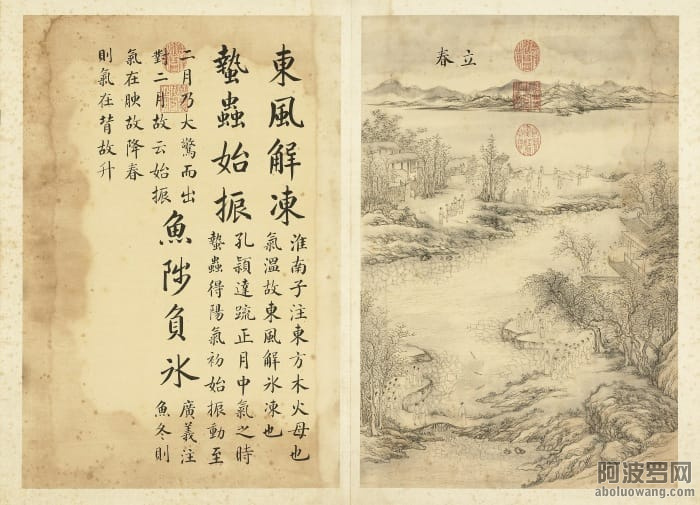 立春
東風解凍
淮南子注東方木火母也
氣溫故東風解氷凍也
蟄蟲始振
孔穎達疏正月中氣之時
蟄蟲得陽氣初始振動至
二月乃大驚而出
對二月故云始振
魚陟負氷
廣義注
魚冬則
氣在腴故降春
則氣在背故升
阿波罗网
aboluowang.com